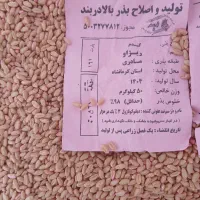 تولید و اصلاح بذر بالادربند
مجوز: ۵۰۰۳۴۷۷۸۱۲
گندم
ریژاو
طبقه بذری: مادری
محل تولید: استان کرمانشاه
سال تولید: ۱۴۰۴
وزن خالص: ۵۰ کیلوگرم
خلوص بذر: (حداقل) ۹۸٪
تاریخ انقضاء: یک فصل زراعی پس از تولید